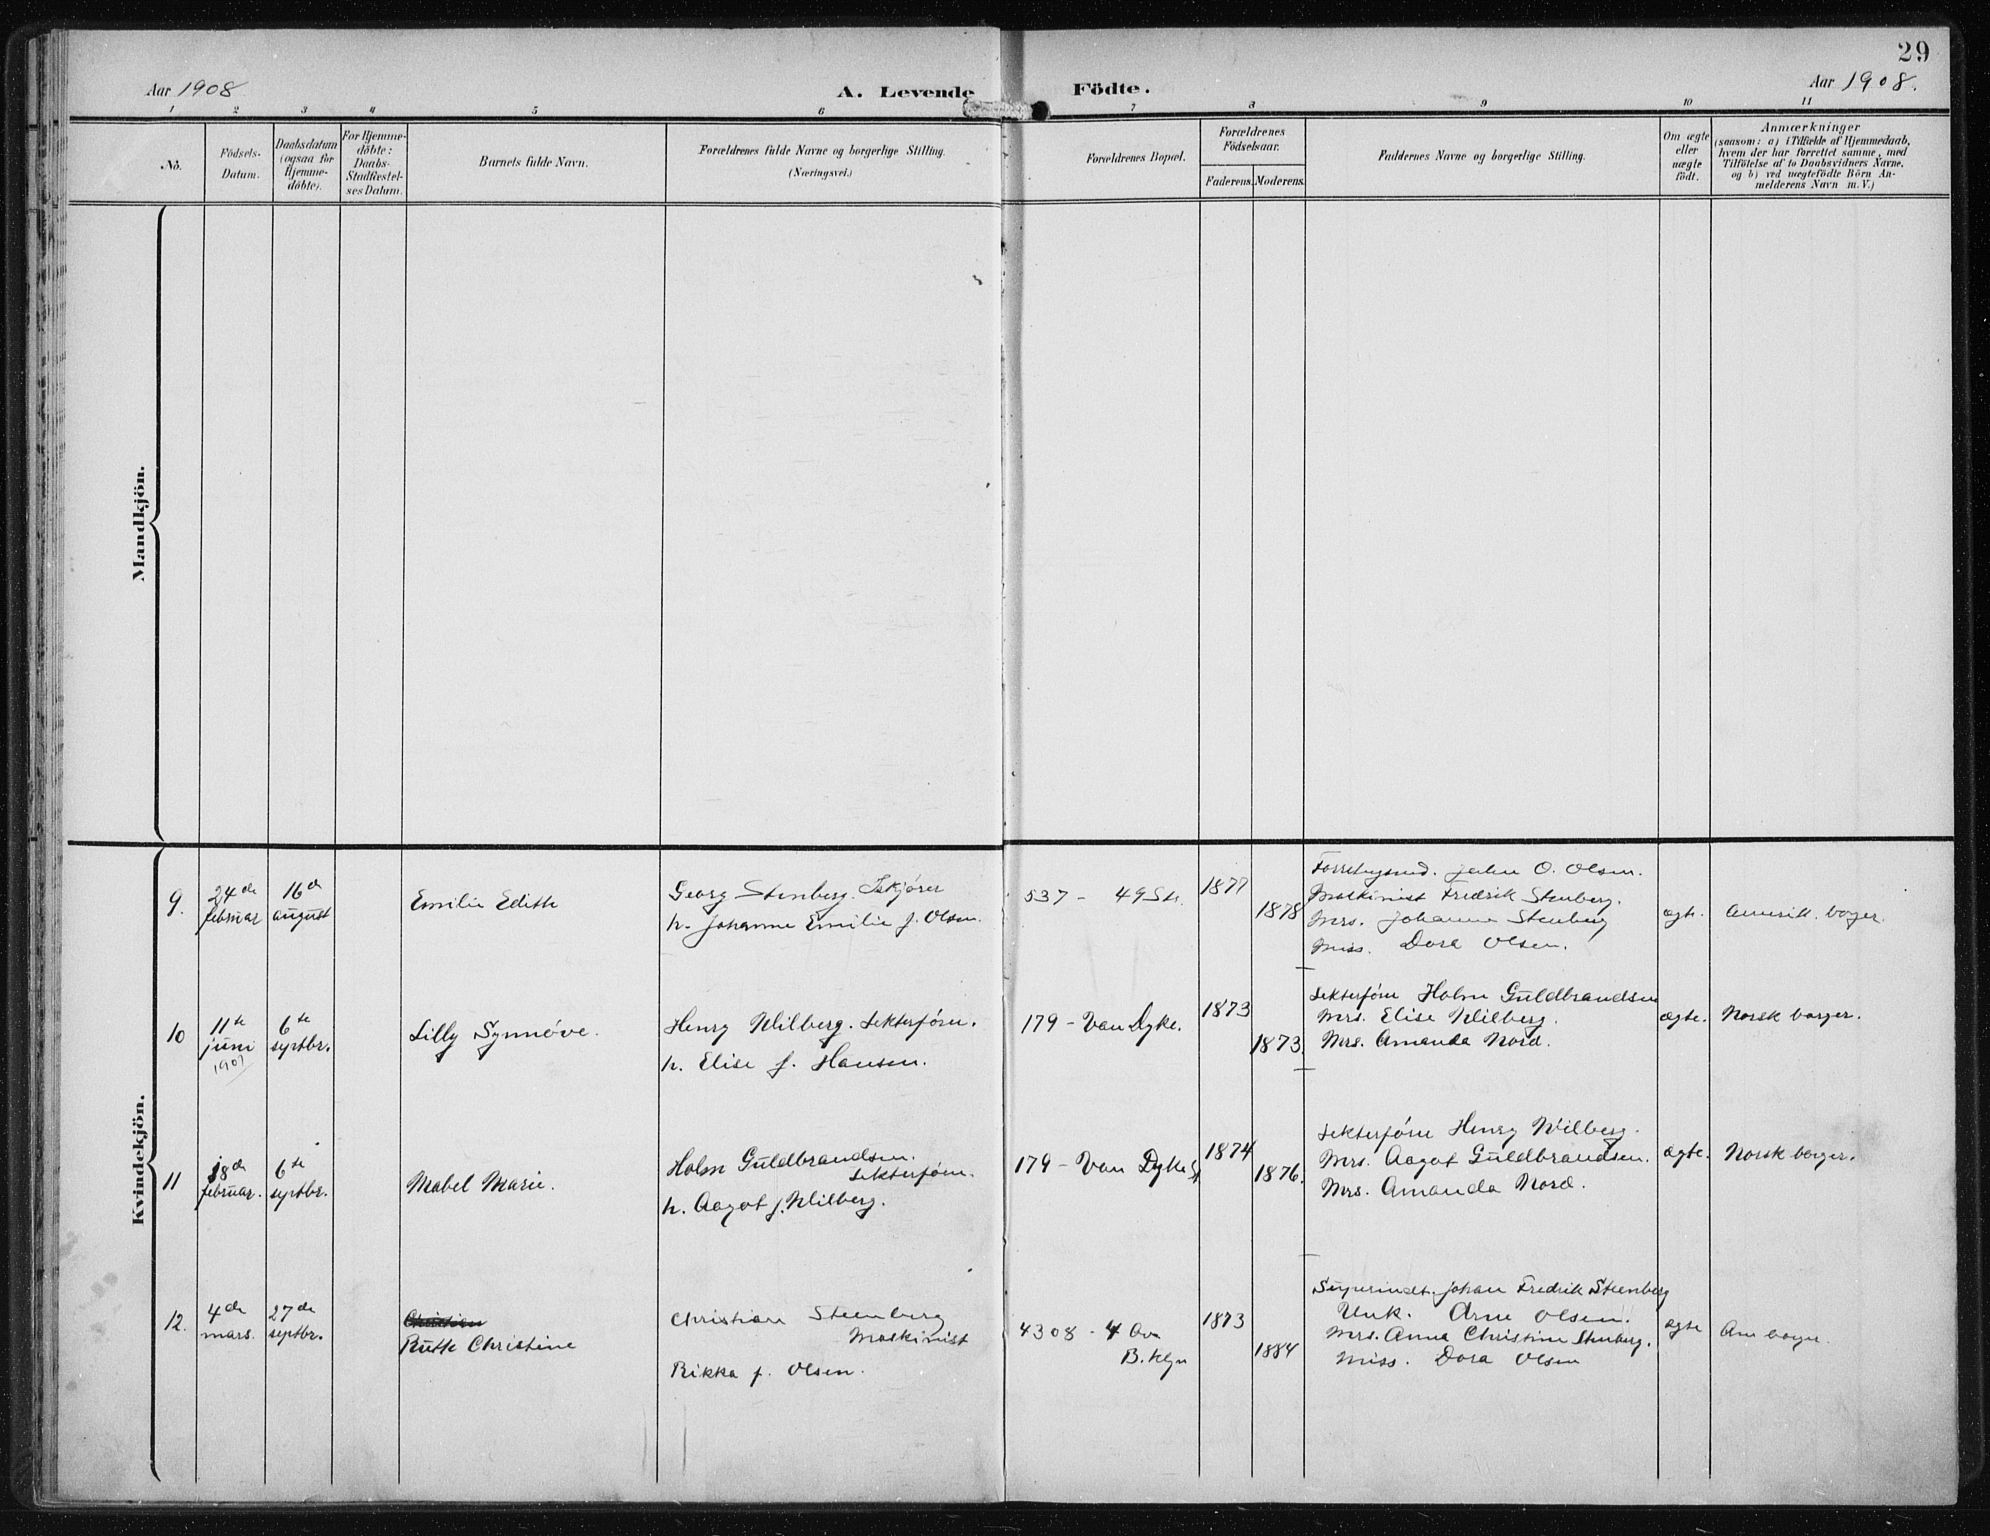 29
Aar 1908
A. Levende Födte.
Aar 1908.
1 2 3 4 5 6 7 8 9 10 11
No.
Födsels-
Datum.
Daabsdatum
(ogsaa for
Hjemme-
döbte).
For Hjemme-
döbte:
Daabs-
Stadfæstel-
ses Datum.
Barnets fulde Navn.
Forældrenes fulde Navne og borgerlige Stilling.
(Næringsvei.)
Forældrenes Bopæl.
Forældrenes
Födselsaar.
Faderens. Moderens.
Faddernes Navne og borgerlige Stilling.
Om ægte
eller
uægte
födt.
Anmærkninger
(saasom: a) i Tilfælde af Hjemmedaab,
hvem der har forrettet samme, med
Tilföielse af to Daabsvidners Navne,
og b) ved uægtefödte Börn An-
melderens Navn m. V.)
Mandkjön.
Kvindekjön.
9.
24de
februar
16de
august
Emilie Edith
Georg Stenberg.
h. Johanne Emilie f. Olsen.
537 - 49 St.
1877
1878
John O. Olsen.
Maskinist Fredrik Stenberg.
Mrs. Johanne Stenberg
Miss. Dora Olsen.
ægte.
Amerik. borger.
10
11te
juni
1907
6te
septbr.
Lilly Synnöve.
Henry Wilberg. Lekterförer.
h. Elise f. Hansen.
179 - Van Dyke.
1873
1873.
Lekterförer Holm Guldbrandsen
Mrs. Elise Wilberg.
Mrs. Amanda Nord.
ægte.
Norsk borger.
11
18de
februar.
6te
septbr.
Mabel Marie.
Holm Guldbrandsen.
Lekterförer.
h. Aagot f. Wilberg.
179 - Van Dyke St
1874
1876.
Lekterförer Henry Wilberg.
Mrs. Aagot Guldbrandsen.
Mrs. Amanda Nord.
ægte.
Norsk borger.
12.
4de
mars.
27de
septbr.
Ruth Christine
Christian Steenberg
Maskinist
Rikka f. Olsen.
4308 - 4 Av
B.klyn
1873
1884
Superindt. Johan Fredrik Steenberg
Unk. Arne Olsen.
Mrs. Anna Christine Stenberg.
Miss. Dora Olsen
ægte
Am borger.